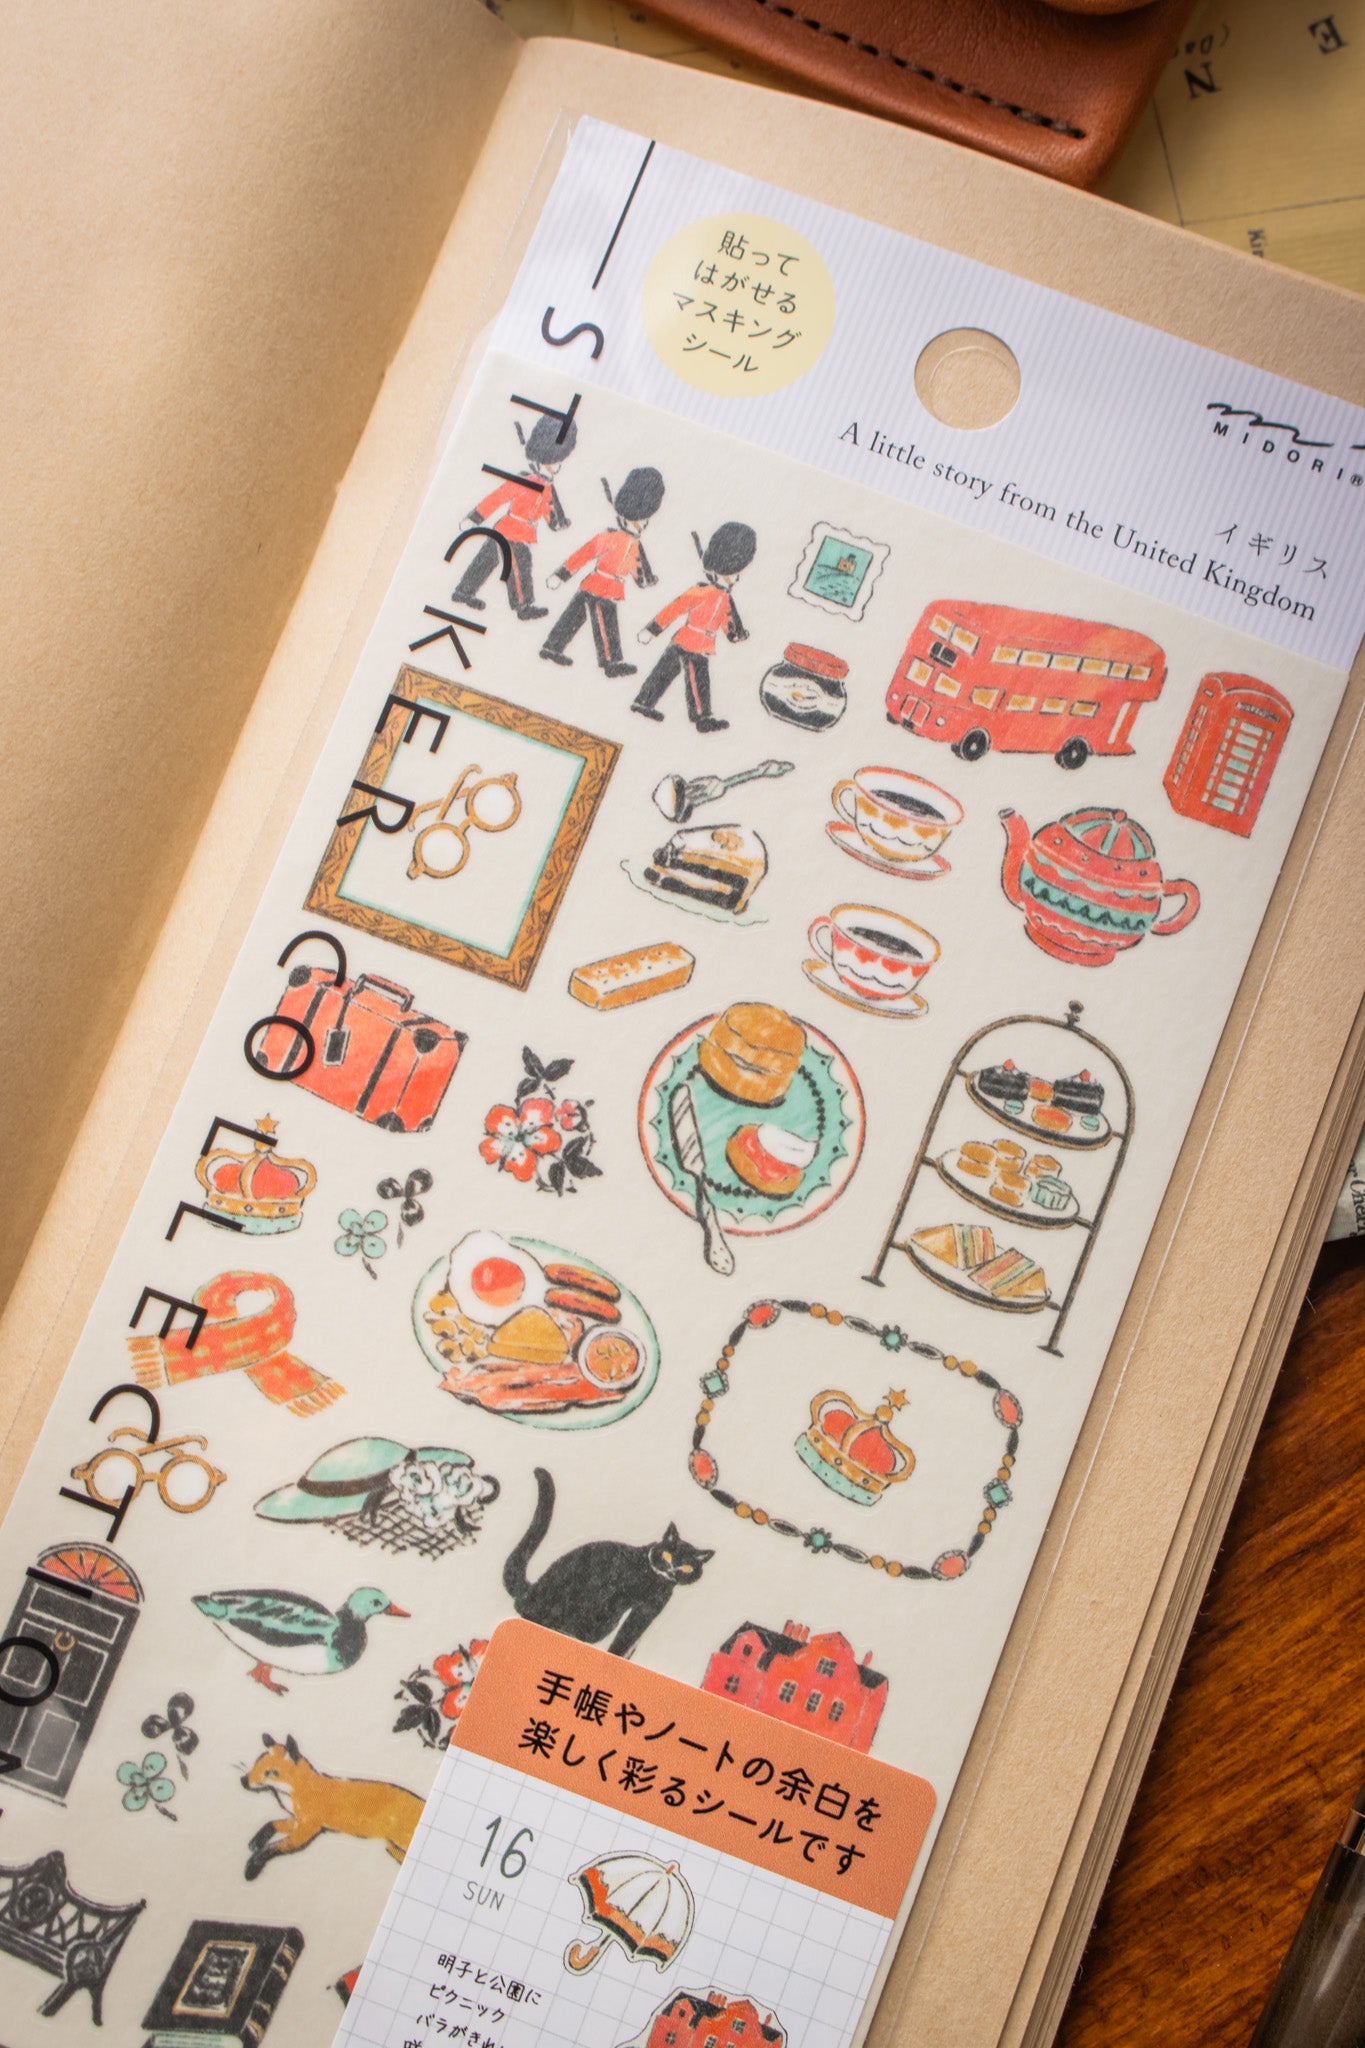 E
N
(Da
Kin
貼って
はがせる
マスキング
シール
MIDORI®
イギリス
A little story from the United Kingdom
STICKER COLLECTION
手帳やノートの余白を
楽しく彩るシールです
16
SUN
明子と公園に
ピクニック
バラがきれ
咲